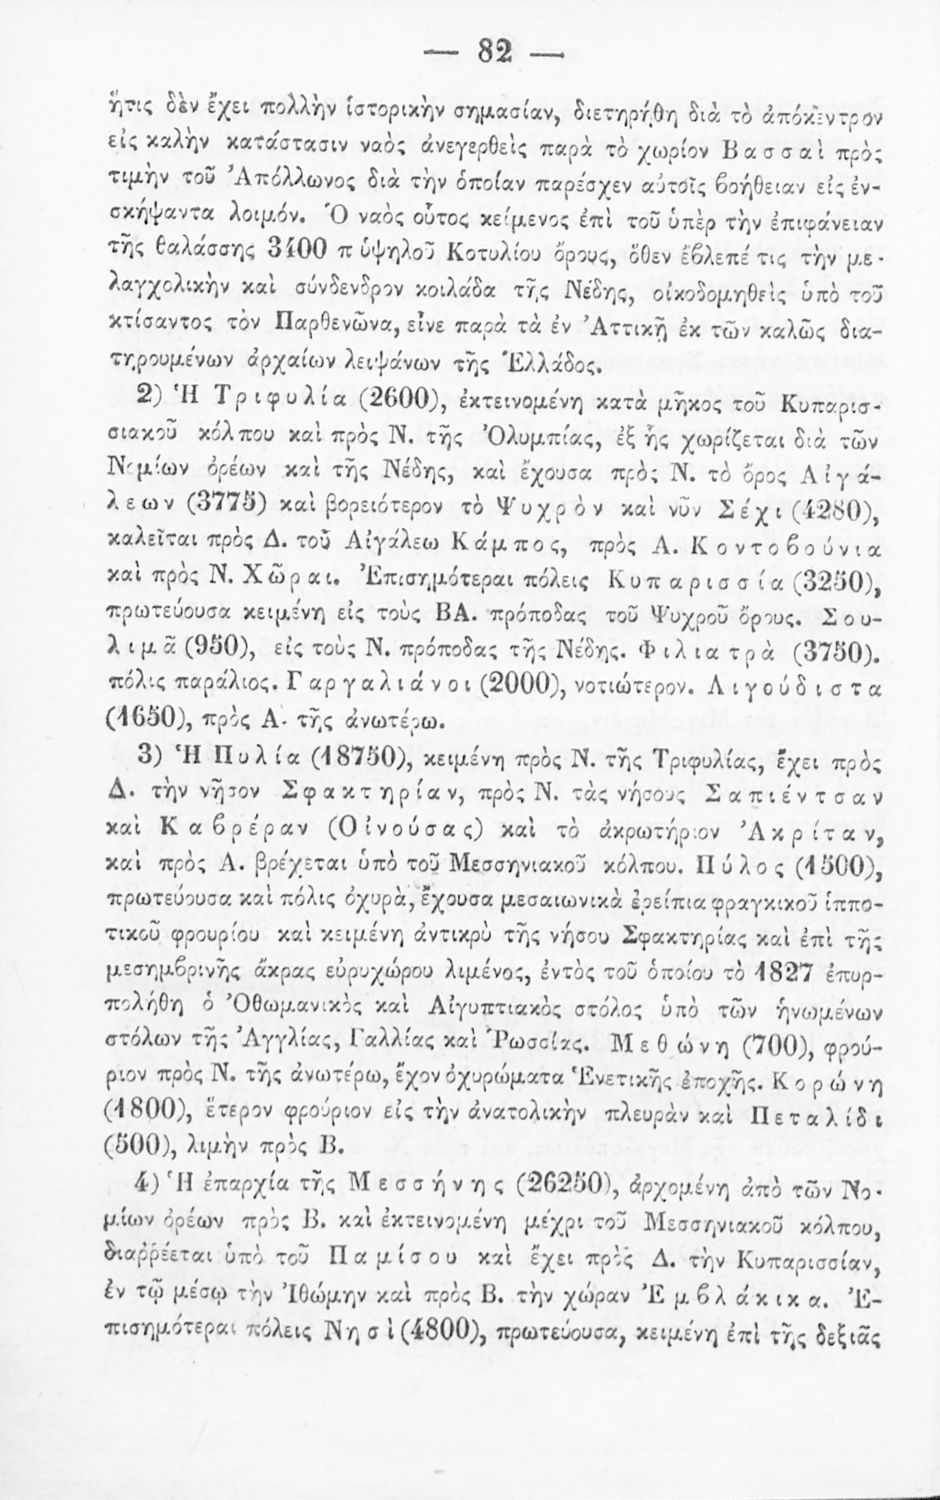 — 82 —
ἥτις δὲν ἔχει πολλὴν ἱστορικὴν σημασίαν, διετηρήθη διὰ τὸ ἀπόκεντρον
εἰς καλὴν κατάστασιν ναὸς ἀνεγερθεὶς παρὰ τὸ χωρίον Βασσαὶ πρὸς
τιμὴν τοῦ Ἀπόλλωνος διὰ τὴν ὁποίαν παρέσχεν αὐτοῖς βοήθειαν εἰς ἐν-
σκήψαντα λοιμόν. Ὁ ναὸς οὗτος κείμενος ἐπὶ τοῦ ὑπὲρ τὴν ἐπιφάνειαν
τῆς θαλάσσης 3400 π ὑψηλοῦ Κοτυλίου ὄρους, ὅθεν ἔβλεπέ τις τὴν με-
λαγχολικὴν καὶ σύνδενδρον κοιλάδα τῆς Νέδης, οἰκοδομηθεὶς ὑπὸ τοῦ
κτίσαντος τὸν Παρθενῶνα, εἶνε παρὰ τὰ ἐν Ἀττικῇ ἐκ τῶν καλῶς δια-
τηρουμένων ἀρχαίων λειψάνων τῆς Ἑλλάδος.
2) Ἡ Τριφυλία (2600), ἐκτεινομένη κατὰ μῆκος τοῦ Κυπαρισ-
σιακοῦ κόλπου καὶ πρὸς Ν. τῆς Ὀλυμπίας, ἐξ ἧς χωρίζεται διὰ τῶν
Νεμίων ὀρέων καὶ τῆς Νέδης, καὶ ἔχουσα πρὸς Ν. τὸ ὄρος Αἰγά-
λεων (3775) καὶ βορειότερον τὸ Ψυχρὸν καὶ νῦν Σέχι (4280),
καλεῖται πρὸς Δ. τοῦ Αἰγάλεω Κάμπος, πρὸς Α. Κοντοβούνια
καὶ πρὸς Ν. Χῶραι. Ἐπισημότεραι πόλεις Κυπαρισσία (3250),
πρωτεύουσα κειμένη εἰς τοὺς ΒΑ. πρόποδας τοῦ Ψυχροῦ ὄρους. Σου-
λιμᾶ (950), εἰς τοὺς Ν. πρόποδας τῆς Νέδης. Φιλιατρὰ (3750).
πόλις παράλιος. Γαργαλιάνοι (2000), νοτιώτερον. Λιγούδιστα
(1650), πρὸς Α. τῆς ἀνωτέρω.
3) Ἡ Πυλία (18750), κειμένη πρὸς Ν. τῆς Τριφυλίας, ἔχει πρὸς
Δ. τὴν νῆσον Σφακτηρίαν, πρὸς Ν. τὰς νήσους Σαπιέντσαν
καὶ Καβρέραν (Οἰνούσας) καὶ τὸ ἀκρωτήριον Ἀκρίταν,
καὶ πρὸς Α. βρέχεται ὑπὸ τοῦ Μεσσηνιακοῦ κόλπου. Πύλος (1500),
πρωτεύουσα καὶ πόλις ὀχυρὰ, ἔχουσα μεσαιωνικὰ ἐρείπια φραγκικοῦ ἱππο-
τικοῦ φρουρίου καὶ κειμένη ἀντικρὺ τῆς νήσου Σφακτηρίας καὶ ἐπὶ τῆς
μεσημβρινῆς ἄκρας εὐρυχώρου λιμένος, ἐντὸς τοῦ ὁποίου τὸ 1827 ἐπυρ-
πολήθη ὁ Ὀθωμανικὸς καὶ Αἰγυπτιακὸς στόλος ὑπὸ τῶν ἡνωμένων
στόλων τῆς Ἀγγλίας, Γαλλίας καὶ Ῥωσσίας. Μεθώνη (700), φρού-
ριον πρὸς Ν. τῆς ἀνωτέρω, ἔχον ὀχυρώματα Ἑνετικῆς ἐποχῆς. Κορώνη
(1800), ἕτερον φρούριον εἰς τὴν ἀνατολικὴν πλευρὰν καὶ Πεταλίδι
(500), λιμὴν πρὸς Β.
4) Ἡ ἐπαρχία τῆς Μεσσήνης (26250), ἀρχομένη ἀπὸ τῶν Νο-
μίων ὀρέων πρὸς Β. καὶ ἐκτεινομένη μέχρι τοῦ Μεσσηνιακοῦ κόλπου,
διαῤῥέεται ὑπὸ τοῦ Παμίσου καὶ ἔχει πρὸς Δ. τὴν Κυπαρισσίαν,
ἐν τῷ μέσῳ τὴν Ἰθώμην καὶ πρὸς Β. τὴν χώραν Ἐμβλάκικα. Ἐ-
πισημότεραι πόλεις Νησὶ (4800), πρωτεύουσα, κειμένη ἐπὶ τῆς δεξιᾶς